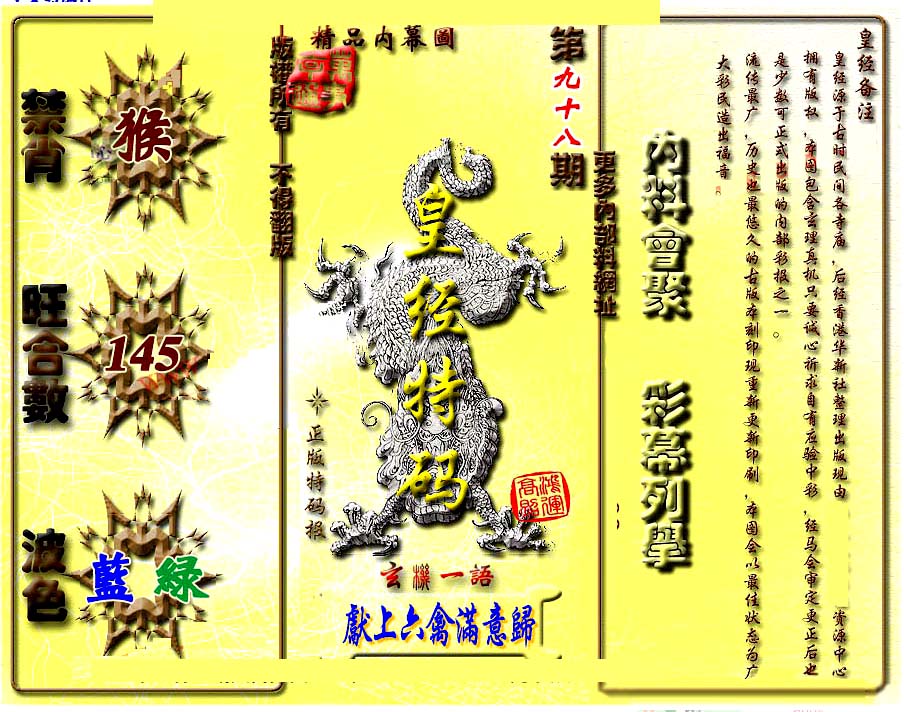 皇经备注
皇经源于古时民间各寺庙，后经香港华新社整理出版现由 资源中心
拥有版权，本图包含玄理真机只要诚心祈求自有应验中彩，经马会审定更正后也
是少数可正式出版的内部彩报之一。
流传最广，历史也最悠久的古版本刻印现重新更新印刷，本图会以最佳状态为广
大彩民造出福音
內料會聚
彩幕列舉
更多內部料網址
第九十八期
精品内幕圖
版權所有 不得翻版
皇经特码
正版特码报
鴻運高照
玄機一語
獻上六禽滿意歸
禁肖
猴
旺合數
145
波色
藍 綠